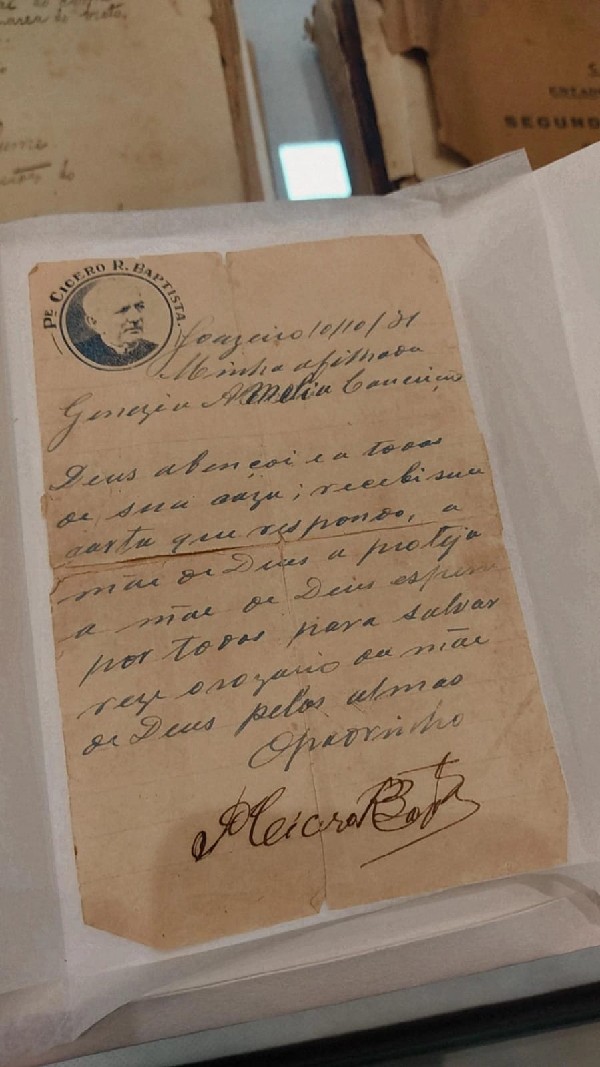 SEGUND
PE CICERO R. BAPTISTA.
Joazeiro 10/10/31
Minha afilhada
Amelia Conceição
Deus abençoi e a todos
de sua caza; recebi sua
carta que respondo, a
mãe de Deus a proteja
a mãe de Deus espera
por todos para salvar
reze o rozario da mãe
de Deus pelas almas
O padrinho